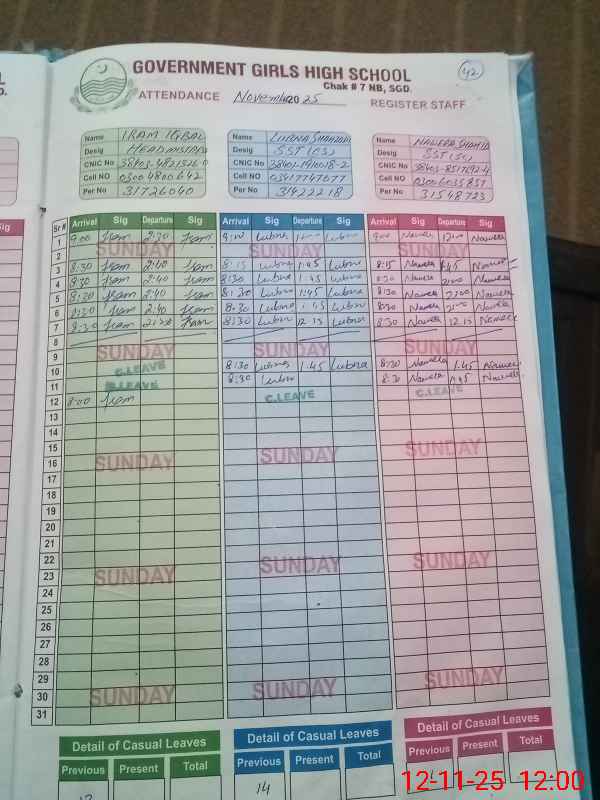 GOVERNMENT GIRLS HIGH SCHOOL
Chak # 7 NB, SGD.
42
ATTENDANCE November 2025 REGISTER STAFF
Name IRAM IQBAL
Desig Headmistress
CNIC No
Cell NO 0300 4800642
Per No 31726040
Name LUBNA SHAHZADI
Desig SST (CS)
CNIC No 38401-1910118-2
Cell NO 03417747077
Per No 31422218
Name
Desig SST (SC)
CNIC No
Cell NO 03006035857
Per No 31548723
Sr # Arrival Sig Departure Sig Arrival Sig Departure Sig Arrival Sig Departure Sig
1 9:00 Iram 2:30 Iram Lubna Lubna 9:00 12:00
2 SUNDAY SUNDAY SUNDAY
3 8:30 Iram 2:40 Iram 8:15 Lubna 1:45 Lubna 8:15 1:45
4 8:30 Iram 2:40 Iram 8:30 Lubna 1:45 Lubna 8:30
5 8:30 Iram 2:40 Iram 8:30 Lubna 1:45 Lubna 8:30
6 8:30 Iram 2:40 Iram 8:30 Lubna 1:45 Lubna 8:30
7 8:30 Iram Iram 8:30 Lubna 12:15 Lubna 8:30 12:15
8
9 SUNDAY SUNDAY SUNDAY
10 C.LEAVE 8:30 Lubna 1:45 Lubna 8:30 1:45
11 C.LEAVE 8:30 Lubna 8:30 1:45
12 8:00 Iram C.LEAVE C.LEAVE
13
14
15
16 SUNDAY SUNDAY SUNDAY
17
18
19
20
21
22
23 SUNDAY SUNDAY SUNDAY
24
25
26
27
28
29
30 SUNDAY SUNDAY SUNDAY
31
Detail of Casual Leaves Detail of Casual Leaves Detail of Casual Leaves
Previous Present Total Previous Present Total Previous Present Total
14
12-11-25 12:00